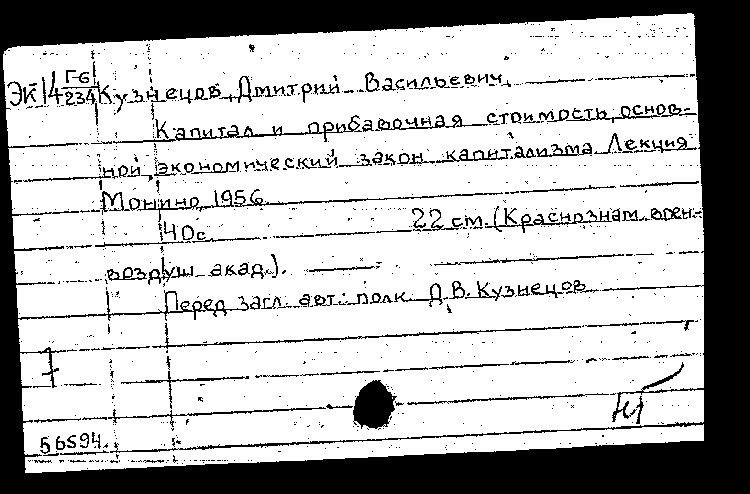 Эк 14 Г-6/234 Кузнецов, Дмитрий Васильевич.
Капитал и прибавочная стоимость, основ-
ной экономический закон капитализма. Лекция
Монино, 1956.
40с. 22 см. (Краснознам. воен-
воздуш. акад.).
Перед загл. авт.: полк. Д.В. Кузнецов
56594.